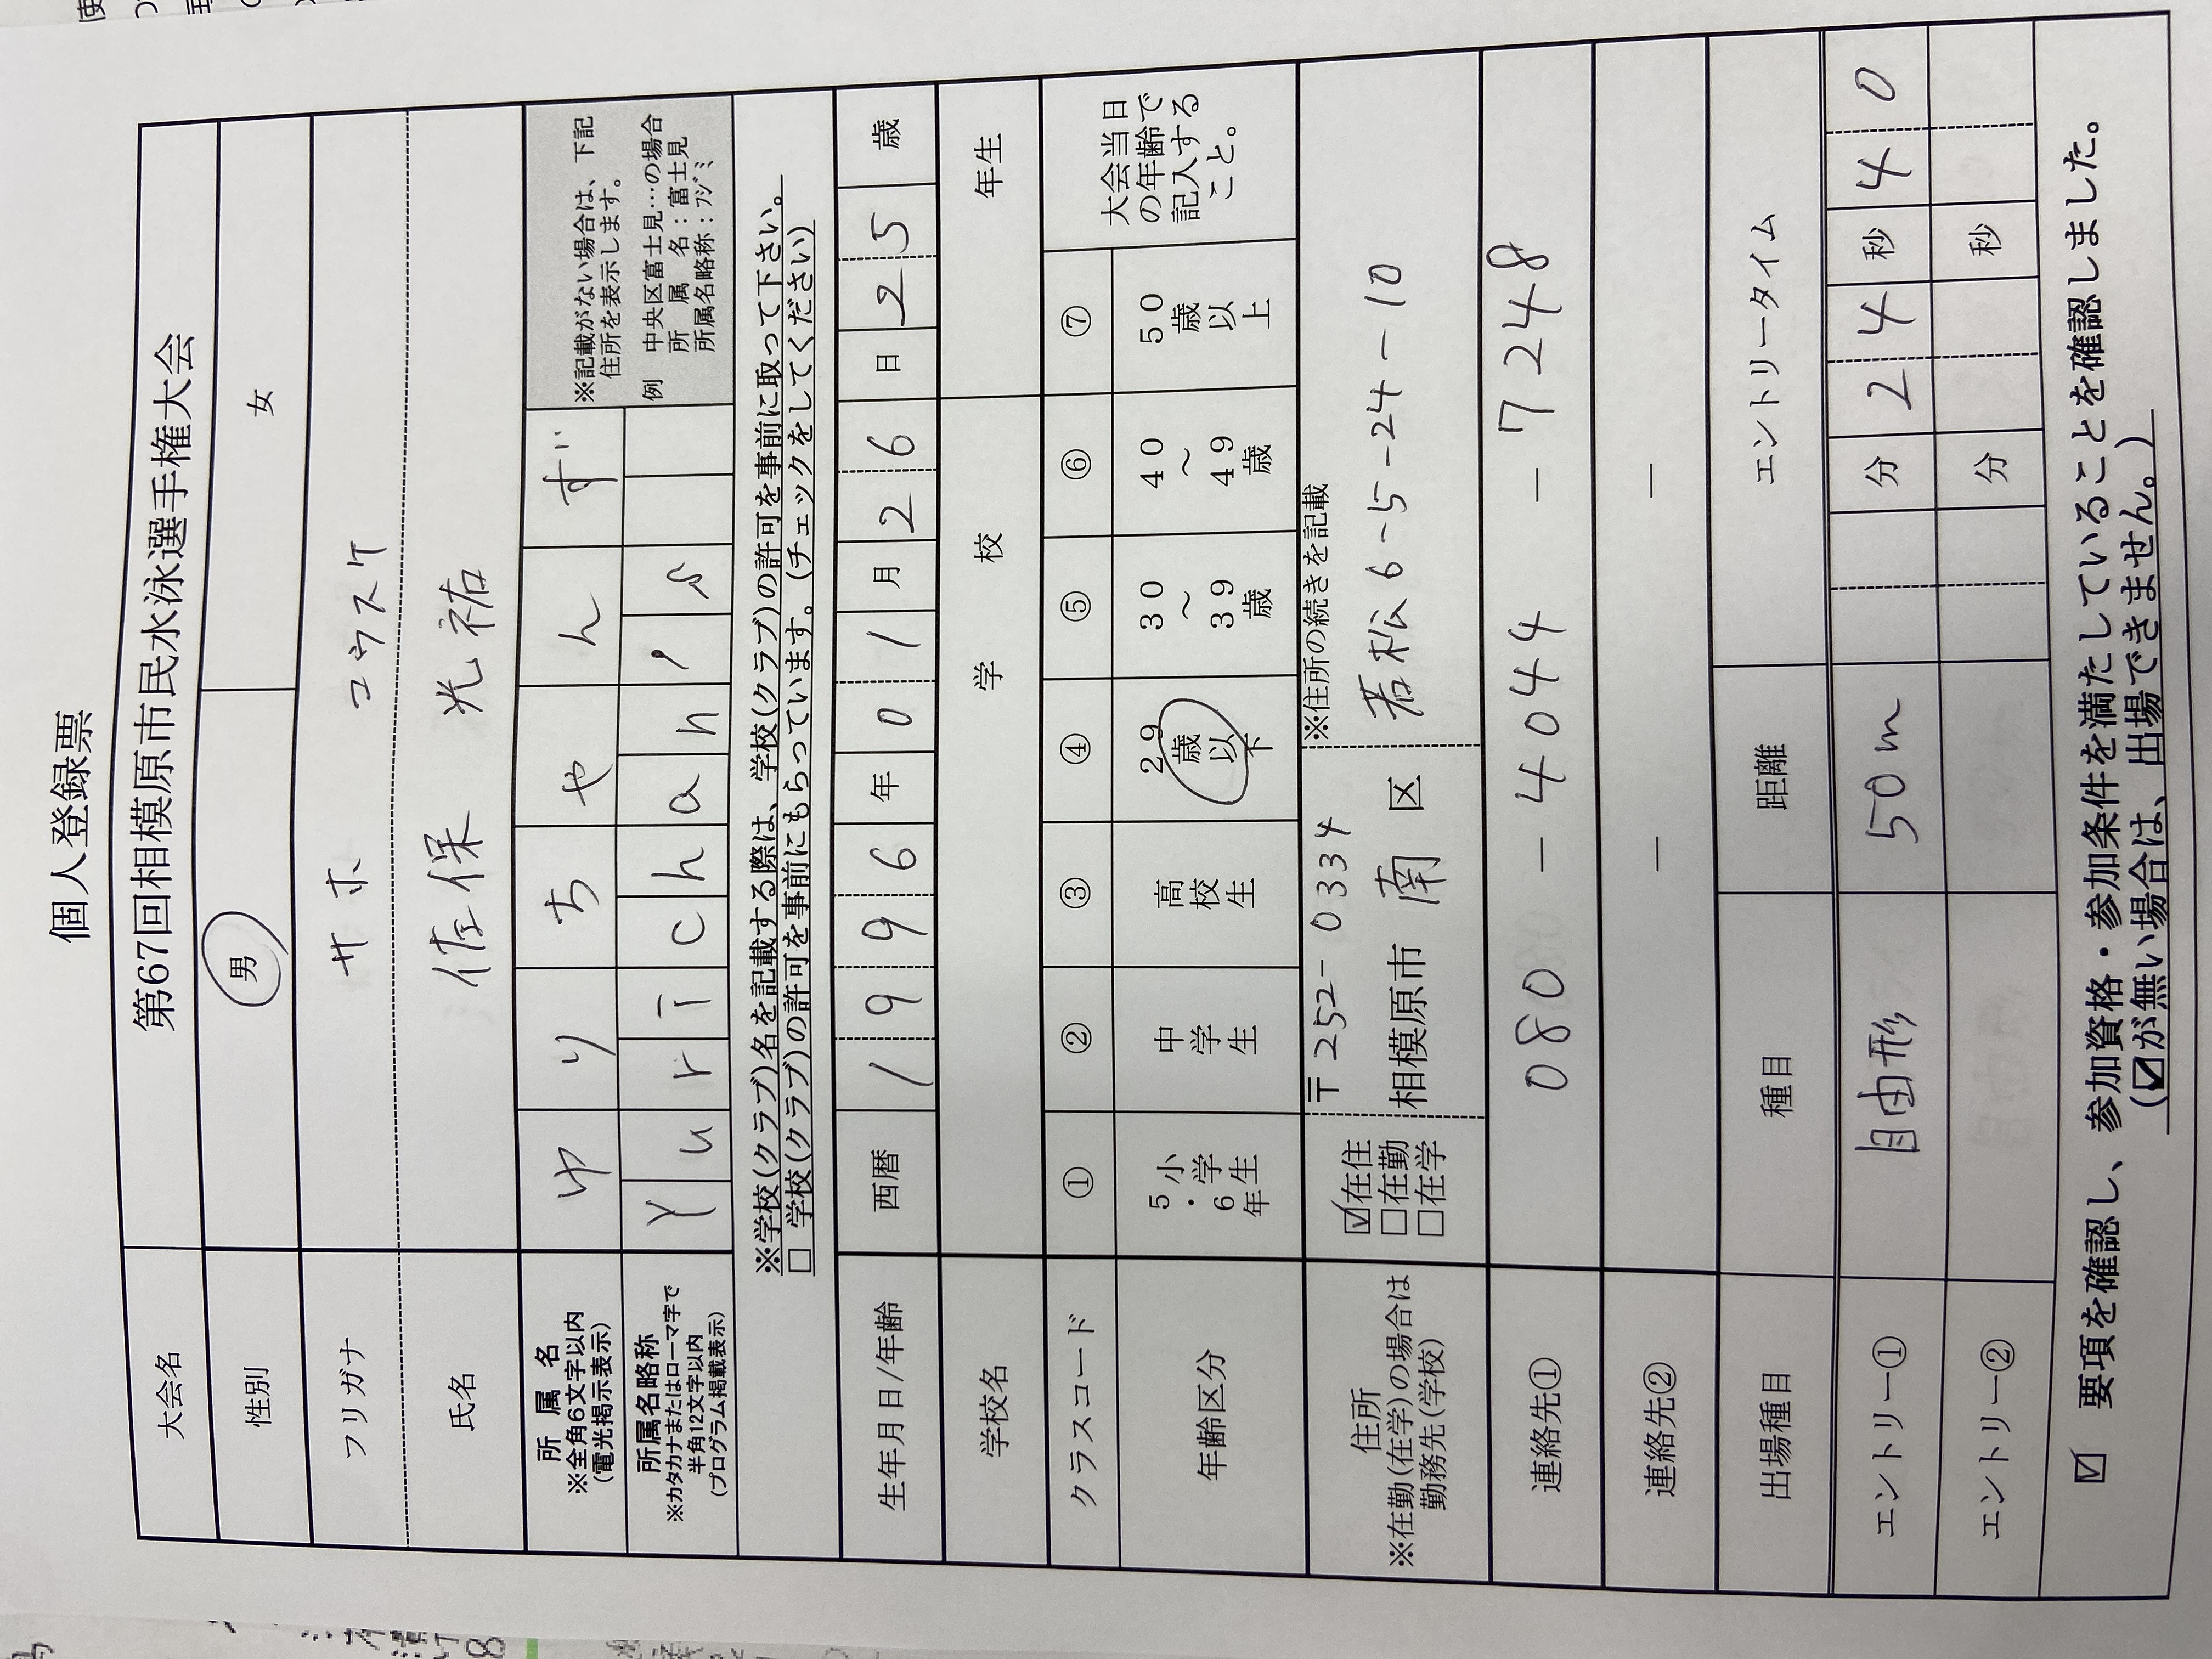 個人登録票
大会名 第67回相模原市民水泳選手権大会
性別 男 女
フリガナ サホ コウスケ
氏名 佐保 光祐
所属名
※全角6文字以内
(電光掲示表示)
ゆりちゃんず
※記載がない場合は、下記
住所を表示します。
所属名略称
※カタカナまたはローマ字で
半角12文字以内
(プログラム掲載表示)
Yurichan's
例 中央区富士見…の場合
所属名：富士見
所属名略称：ﾌｼﾞﾐ
※学校(クラブ)名を記載する際は、学校(クラブ)の許可を事前に取って下さい。
□ 学校(クラブ)の許可を事前にもらっています。(チェックをしてください)
生年月日/年齢 西暦 1996年01月26日25歳
学校名 学校 年生
クラスコード ① ② ③ ④ ⑤ ⑥ ⑦
年齢区分 小学生5・6年 中学生 高校生 29歳以下 30～39歳 40～49歳 50歳以上
大会当日
の年齢で
記入する
こと。
住所
※在勤(在学)の場合は
勤務先(学校)
☑在住
□在勤
□在学
〒252-0334
相模原市 南 区
※住所の続きを記載
若松6-5-24-10
連絡先① 080-4044-7248
連絡先② － －
出場種目 種目 距離 エントリータイム
エントリー① 自由形 50m 分24秒40
エントリー② 分 秒
☑ 要項を確認し、参加資格・参加条件を満たしていることを確認しました。
(☑が無い場合は、出場できません。)